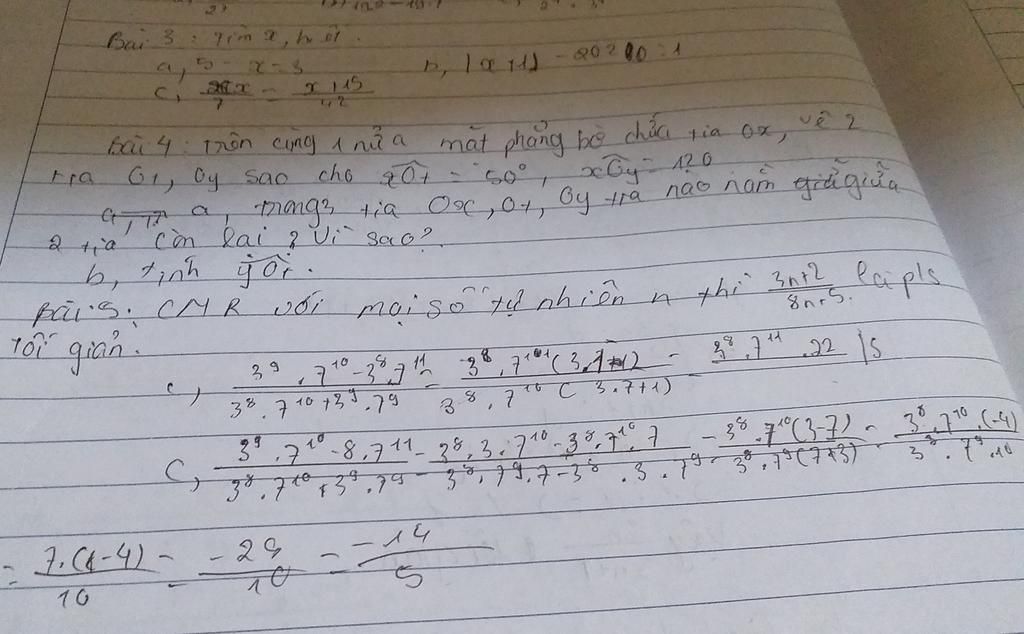 Bài 3 : Tìm x, biết.
a, 5 - x = 3 b, |x+1| - 2020 = 1
c, x/7 = x+15/42
Bài 4 : Trên cùng 1 nửa mặt phẳng bờ chứa tia Ox, vẽ 2
tia Ot, Oy sao cho xOt = 50°, xOy = 120
a, trong 3 tia Ox, Ot, Oy tia nào nằm giữa
2 tia còn lại ? Vì sao?
b, tính yOt.
Bài 5: CMR với mọi số tự nhiên n thì 3n+2/8n+5 là pls
tối giản.
c, 3^9 . 7^10 - 3^8 . 7^11 / 3^8 . 7^10 + 3^9 . 7^9 = 3^8 . 7^10 ( / 3^8 . 7^10 ( 3.7+1) = 3^8 . 7^11 . 22 / 5
C, 3^9 . 7^10 - 8 . 7^11 / 3^8 . 7^10 + 3^9 . 7^9 = 3^8 . 3 . 7^10 - 3^8 . 7^10 . 7 / 3^8 . 7^9 . 7 - 3^8 . 3 . 7^9 = 3^8 . 7^10 (3-7) / 3^8 . 7^9 (7+3) = 3^8 . 7^10 . (-4) / 3^8 . 7^9 . 10
= 7.(-4) / 10 = -28 / 10 = -14 / 5